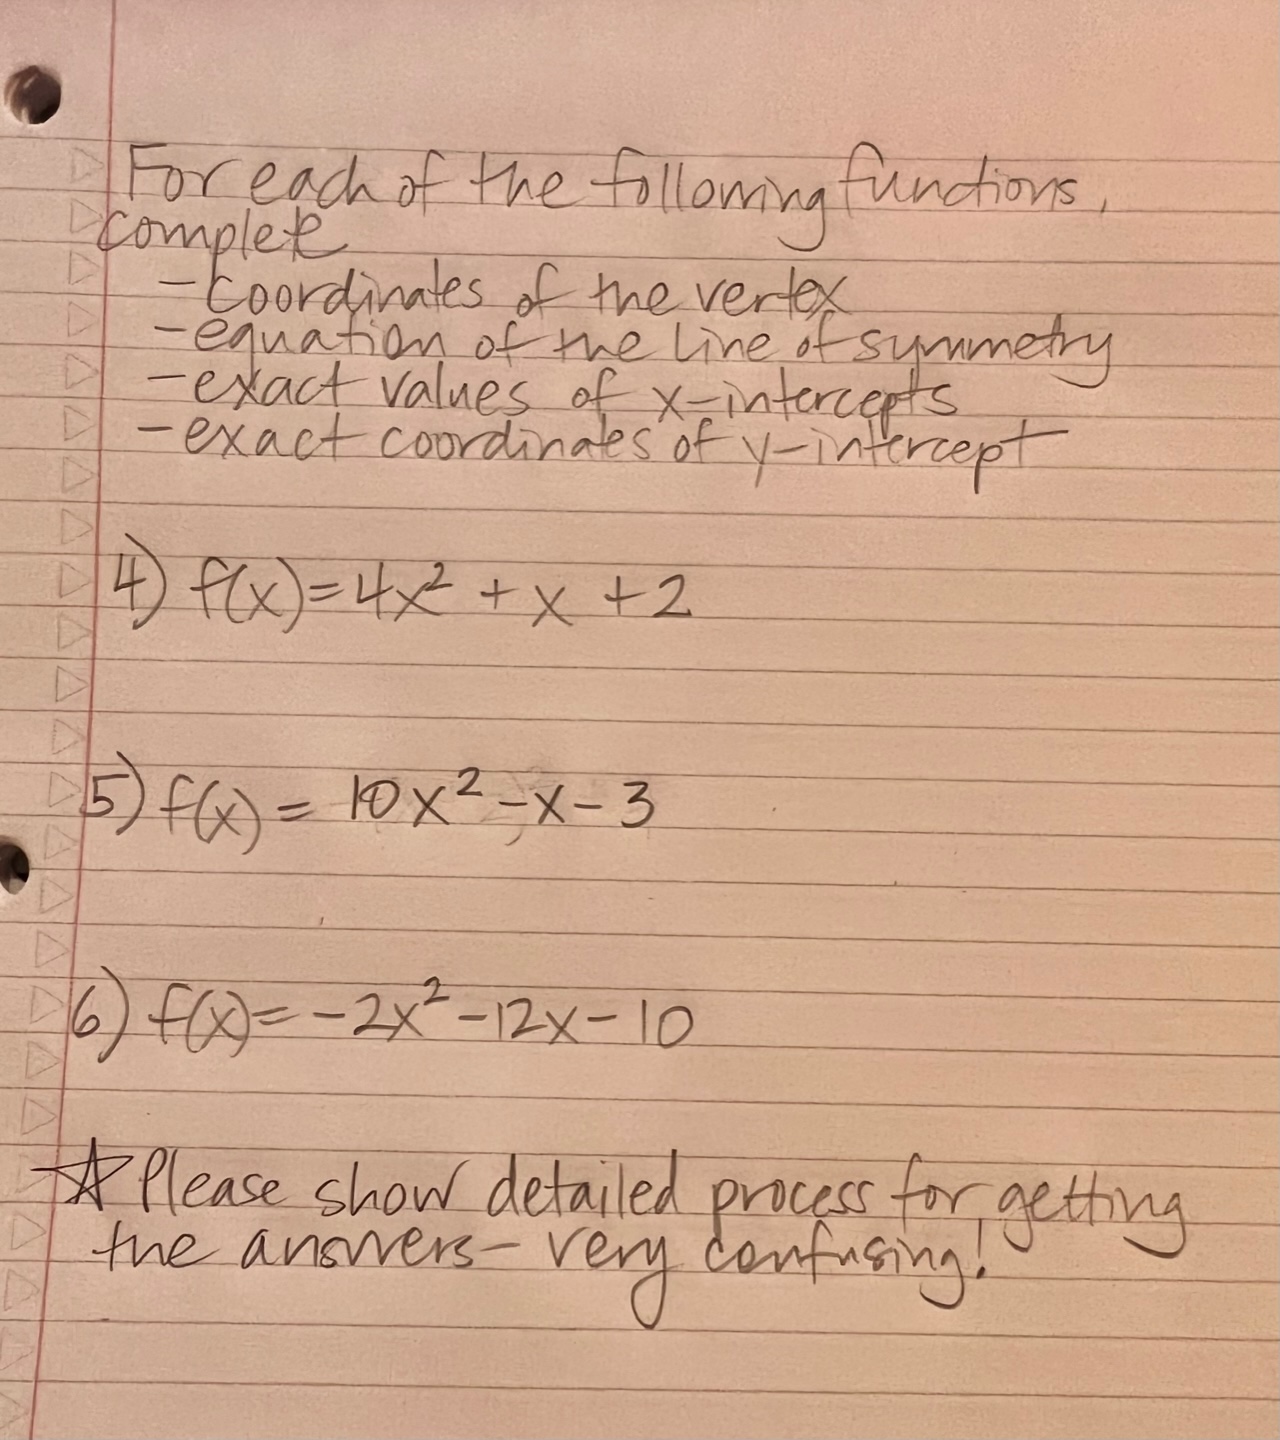 For each of the following functions,
complete
- Coordinates of the vertex
- equation of the line of symmetry
- exact values of x-intercepts
- exact coordinates of y-intercept
4) f(x)=4x² + x + 2
5) f(x) = 10x² - x - 3
6) f(x)= -2x² - 12x - 10
☆ Please show detailed process for getting
the answers - very confusing!